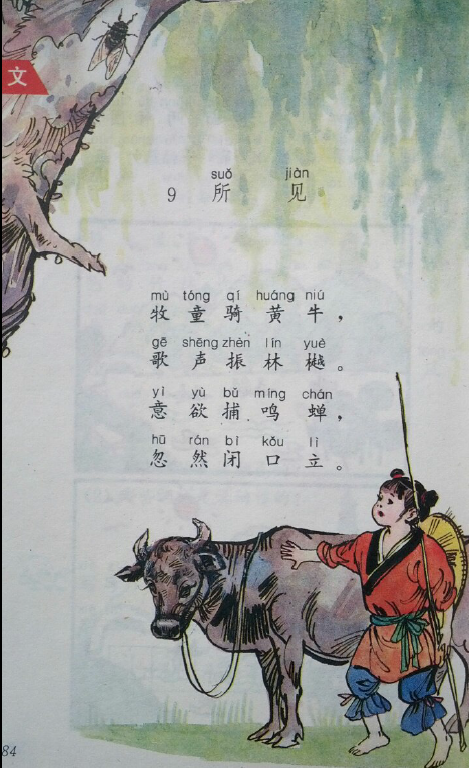 文
suǒ jiàn
9 所 见
mù tóng qí huáng niú
牧 童 骑 黄 牛，
gē shēng zhèn lín yuè
歌 声 振 林 樾。
yì yù bǔ míng chán
意 欲 捕 鸣 蝉，
hū rán bì kǒu lì
忽 然 闭 口 立。
84